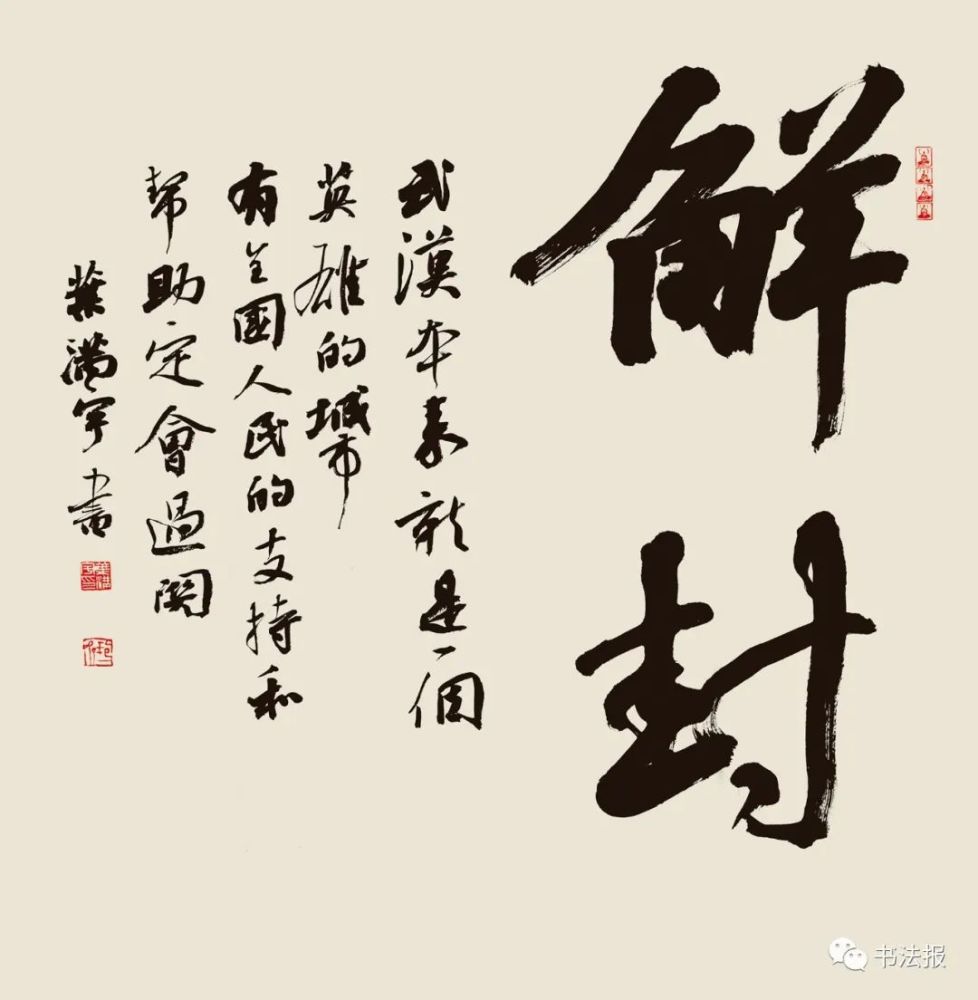 解封
武漢本来就是一個
英雄的城市
有全國人民的支持和
帮助定會過関
葉满宇書
书法报